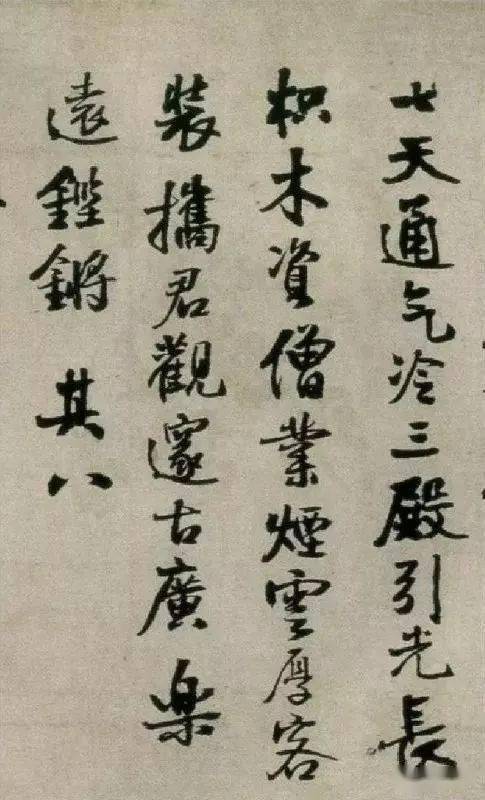 七天通气冷三殿引光長
枳木資僧業煙雲厚客
装攜君觀邃古廣樂
遠鏗鏘 其八